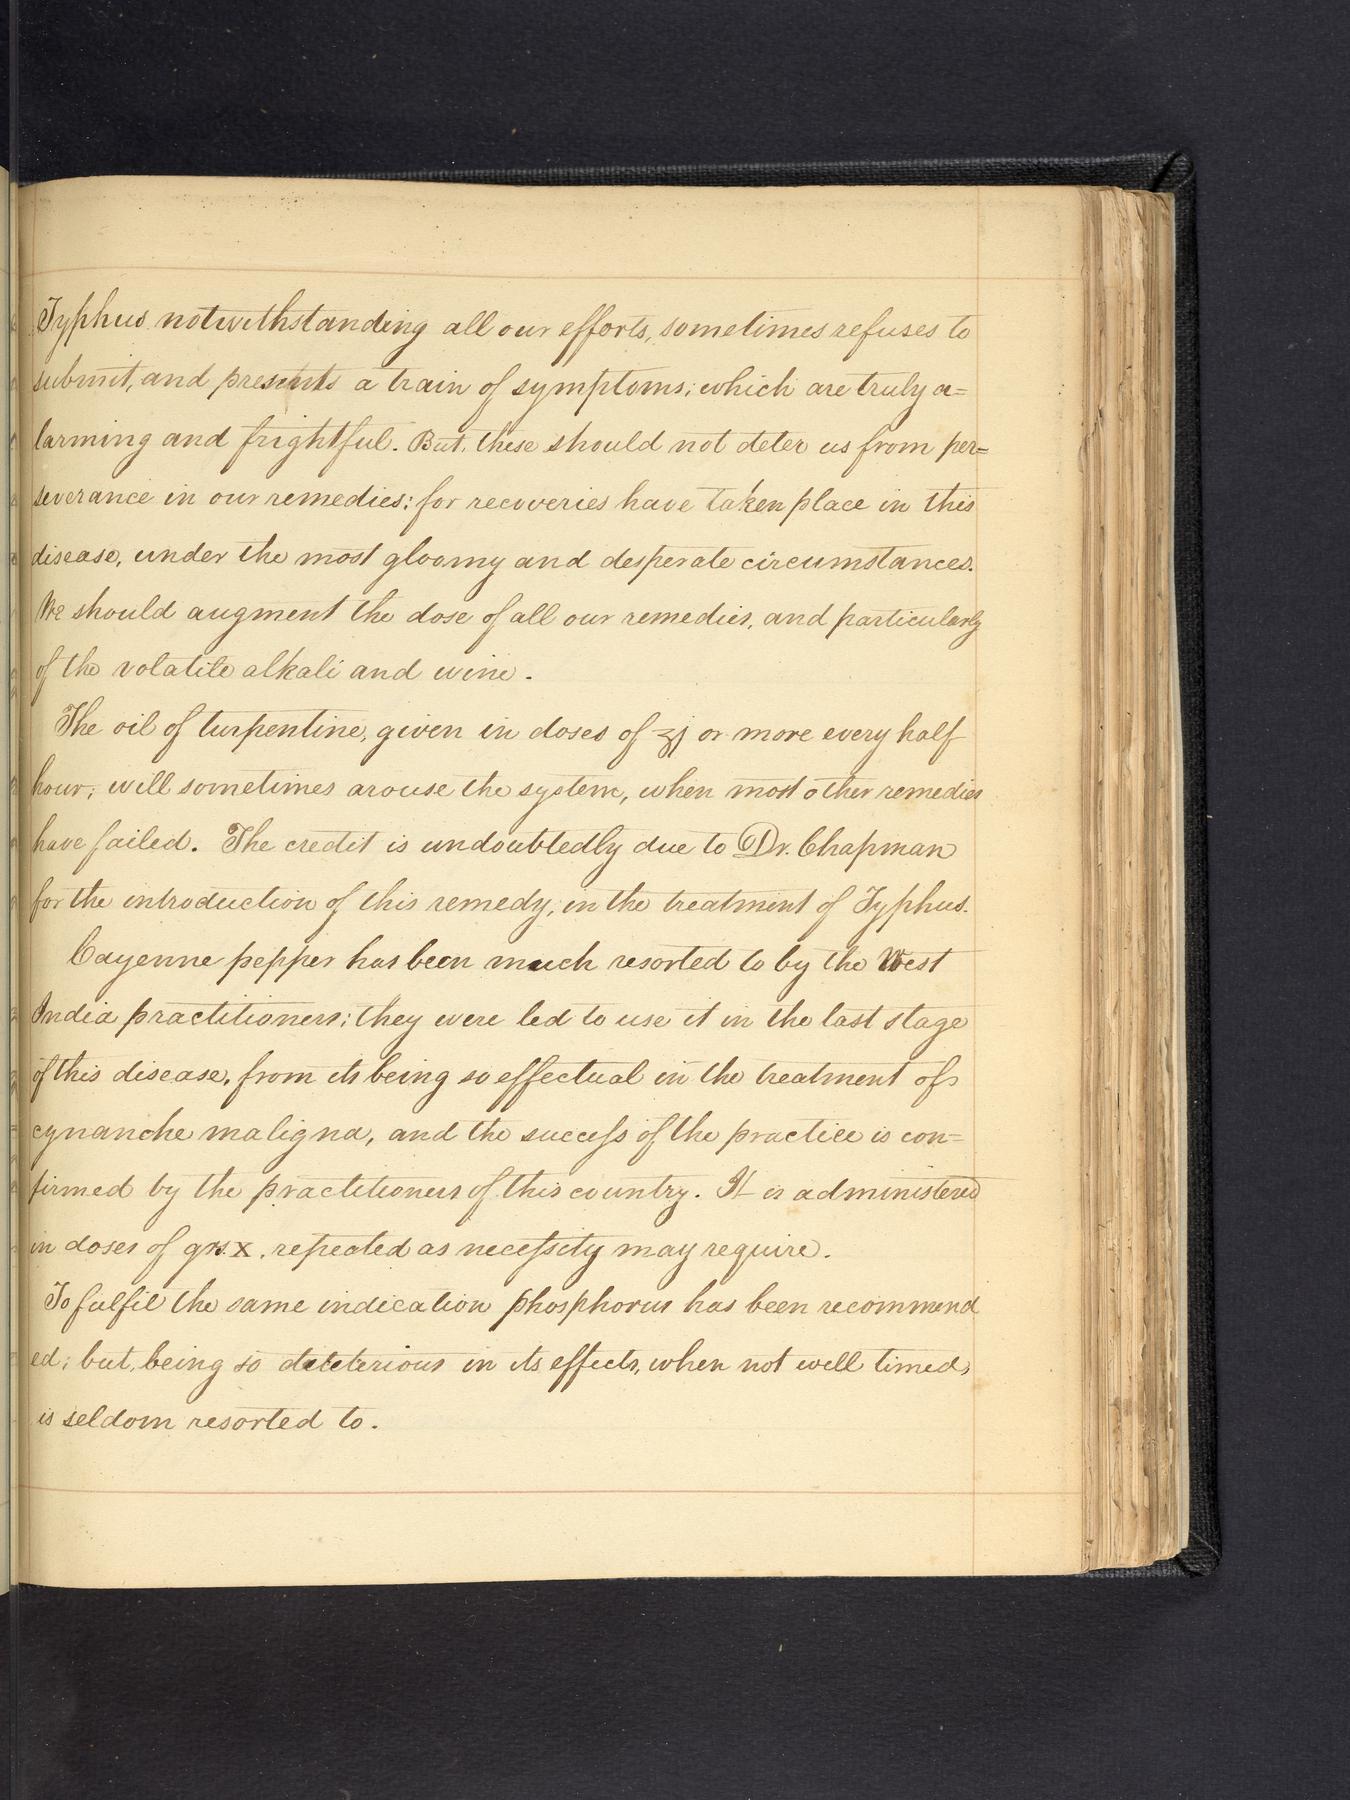 Typhus notwithstanding all our efforts, sometimes refuses to
submit, and presents a train of symptoms; which are truly a=
larming and frightful. But, these should not deter us from per=
severance in our remedies; for recoveries have taken place in this
disease, under the most gloomy and desperate circumstances.
We should augment the dose of all our remedies, and particularly
of the volatile alkali and wine.
The oil of turpentine, given in doses of ʒj or more every half
hour; will sometimes arouse the system, when most other remedies
have failed. The credit is undoubtedly due to Dr. Chapman
for the introduction of this remedy, in the treatment of Typhus.
Cayenne pepper has been much resorted to by the West
India practitioners; they were led to use it in the last stage
of this disease, from its being so effectual in the treatment of
cynanche maligna, and the success of the practice is con=
firmed by the practitioners of this country. It is administered
in doses of grs. X, repeated as necessity may require.
To fulfil the same indication phosphorus has been recommend
ed; but, being so deleterious in its effects, when not well timed,
is seldom resorted to.